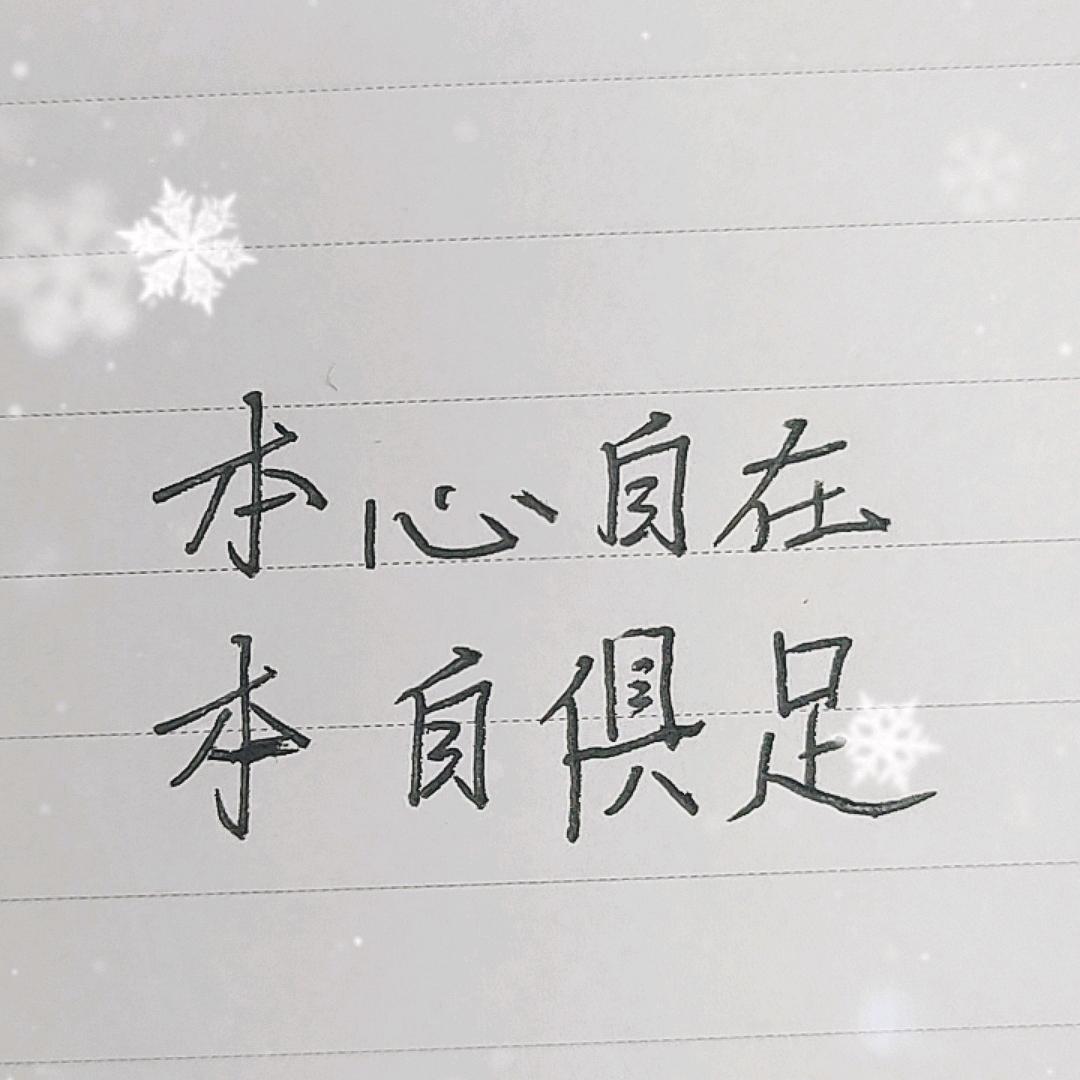 本心自在
本自俱足